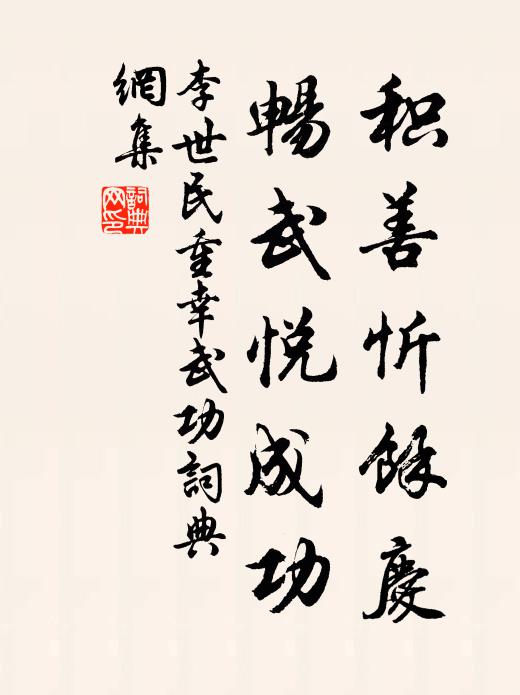 积善忻餘慶
暢武悅成功
李世民重幸武功詞典
網集
詞典
网印